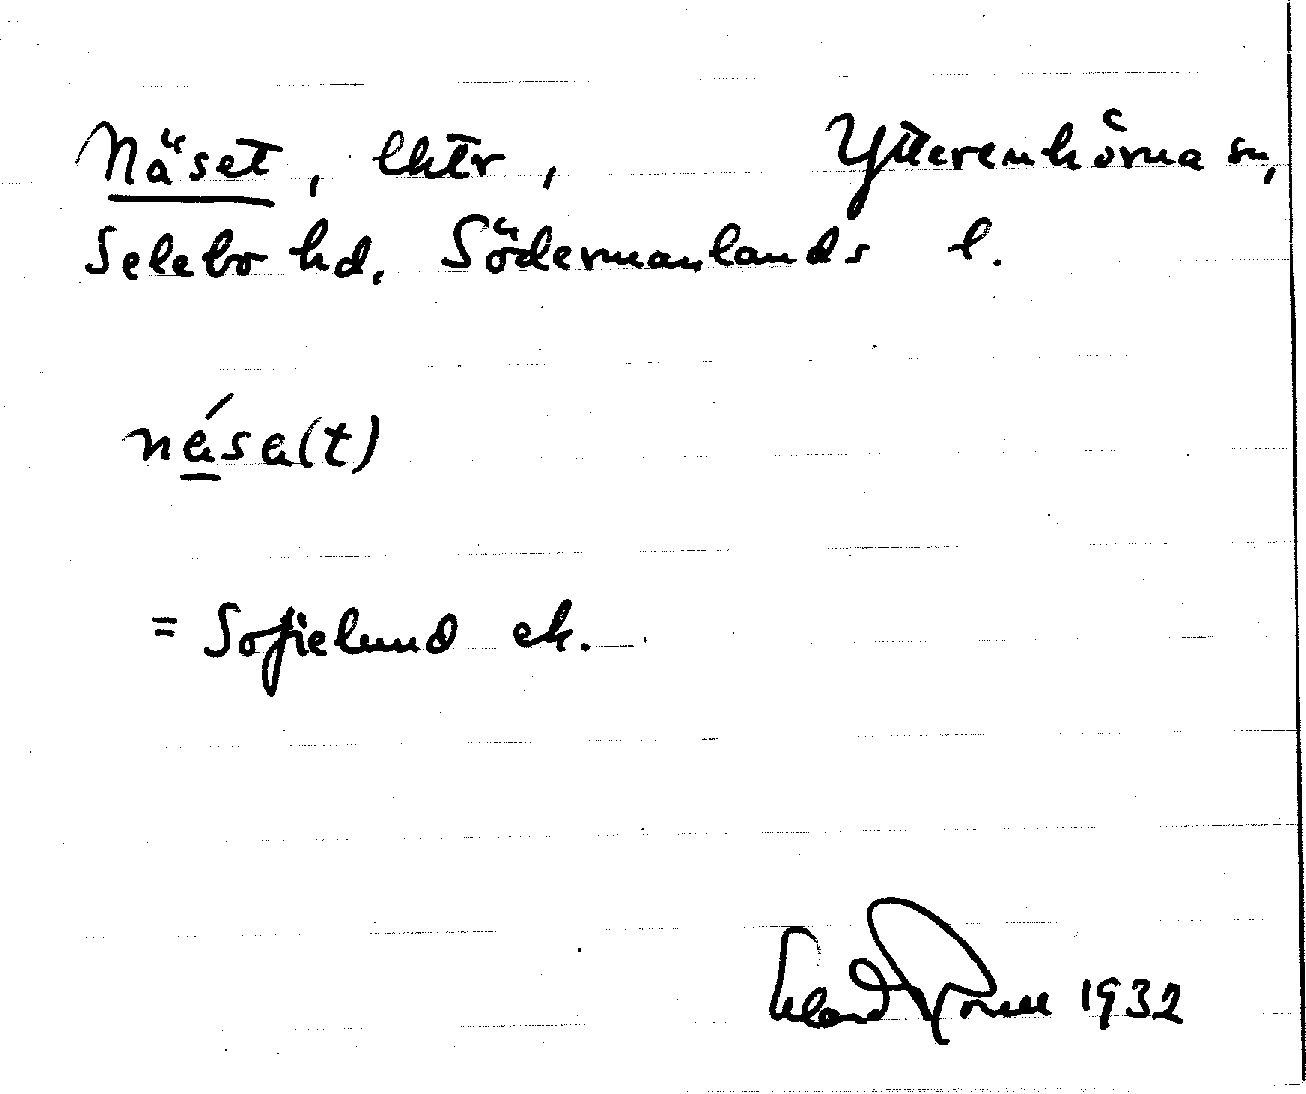 Näset, lktr, Ytterenhörna sn,
Selebo hd, Södermanlands l.
nä́sa(t)
= Sofielund ek.
1932